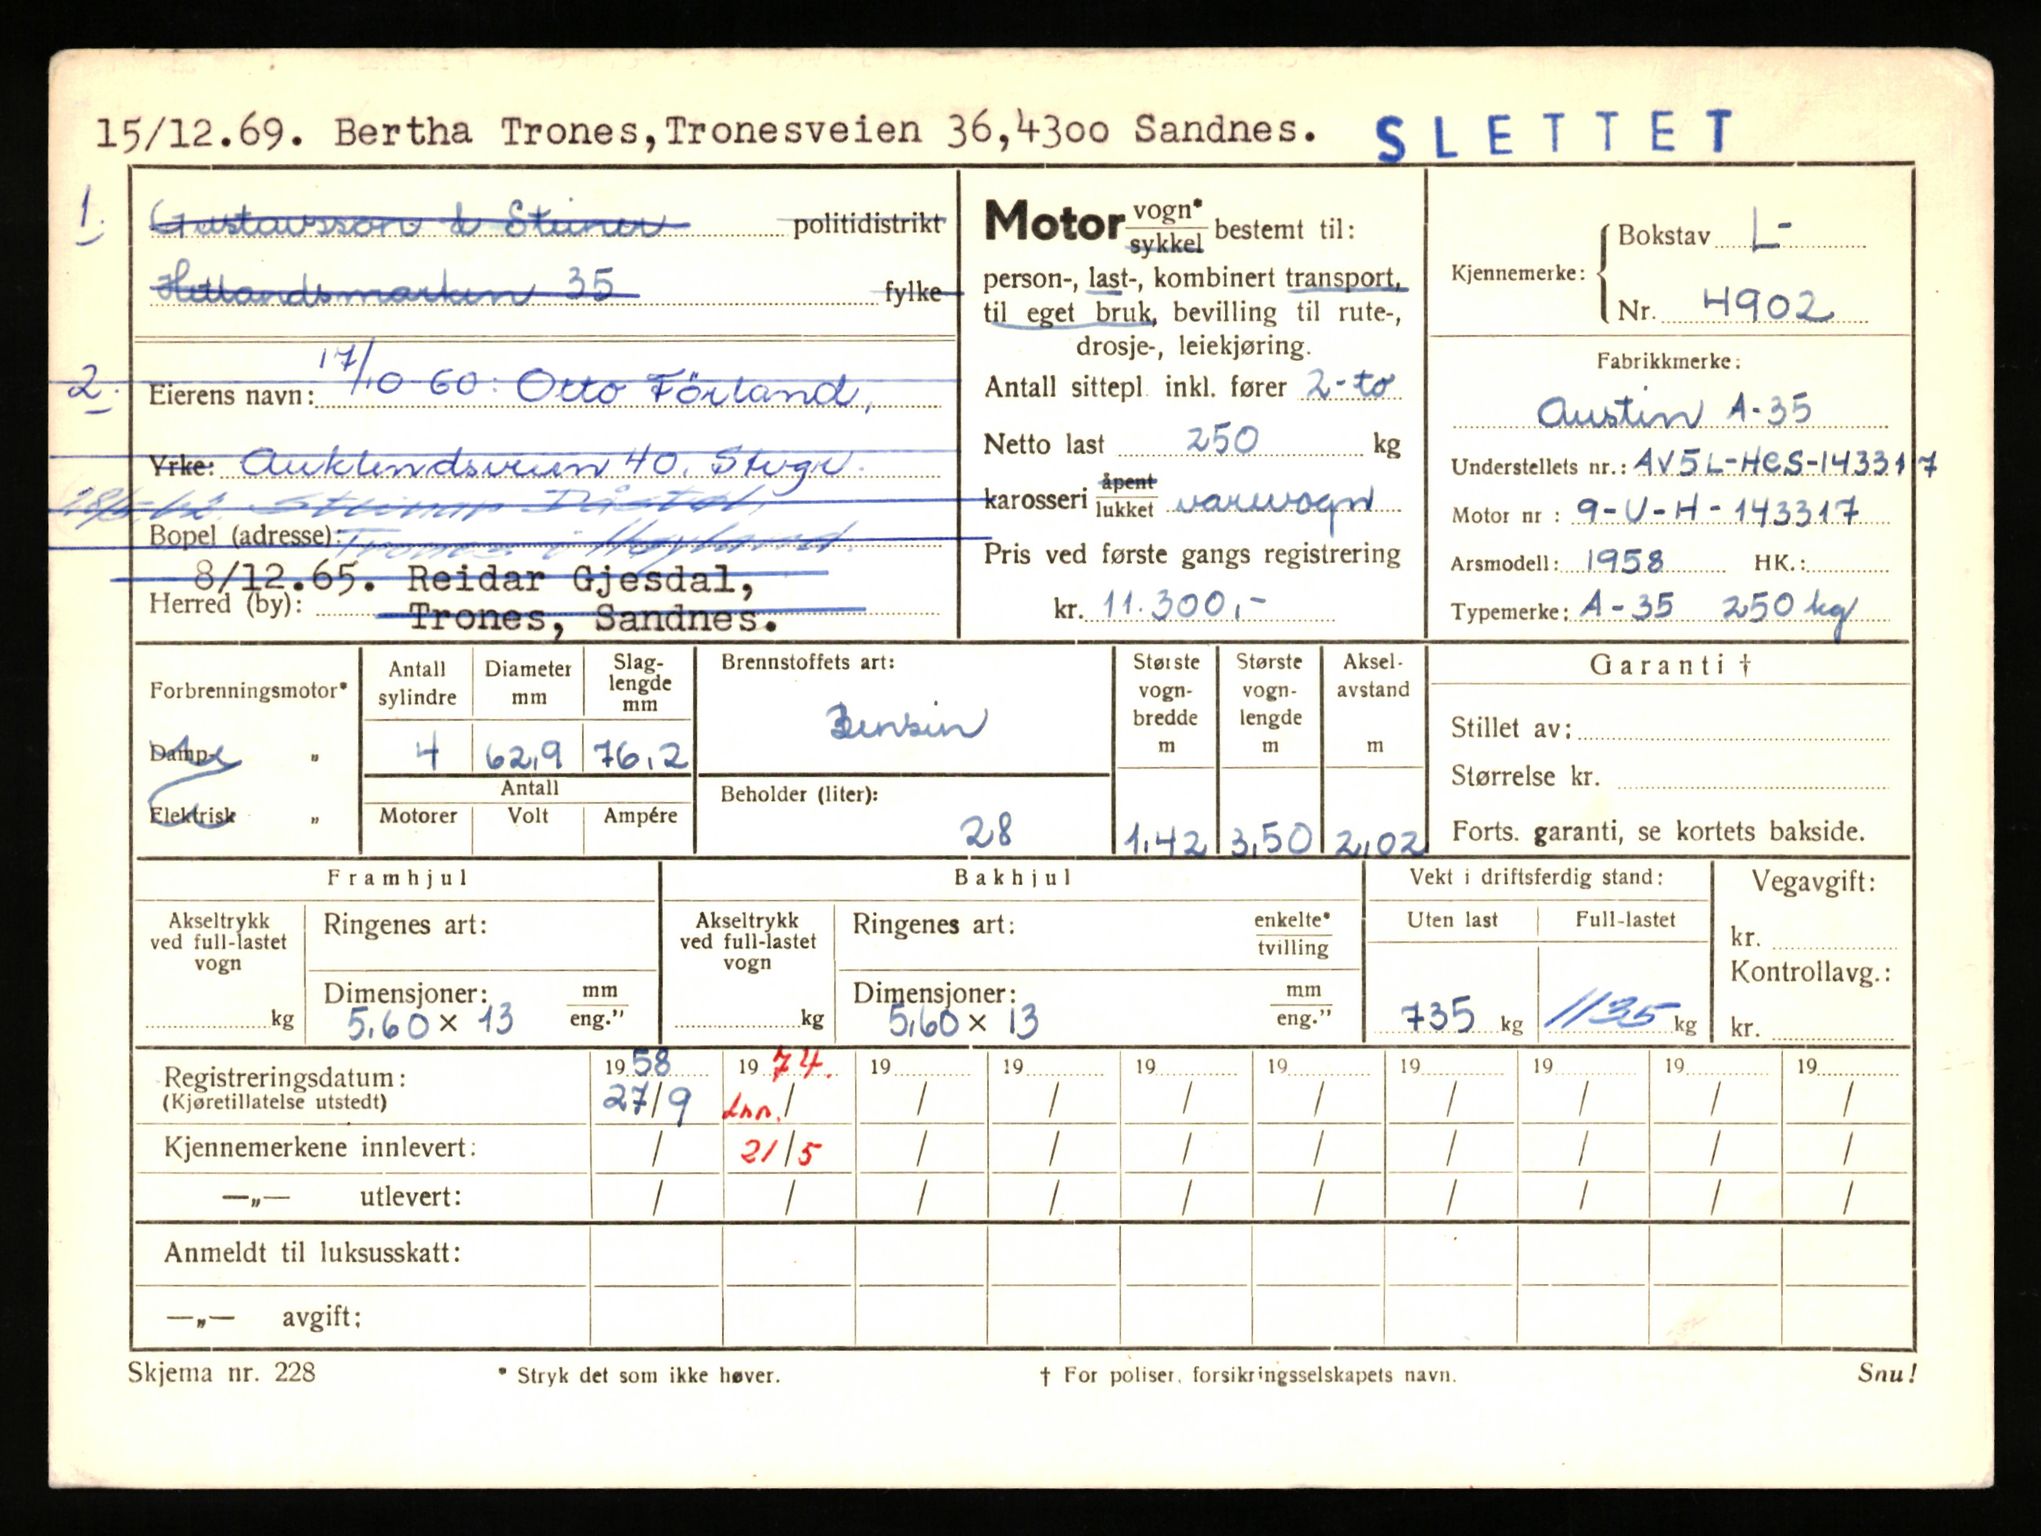 15/12.69. Bertha Trones, Tronesveien 36, 4300 Sandnes. SLETTET
1. Gustavsson & Steiner politidistrikt
Hetlandsmarken 35 fylke
2. Eierens navn: 17/10 60: Otto Förland,
Yrke: Auklendsveien 40. Stvgr.
Bopel (adresse): Trones i Høyland.
8/12.65. Reidar Gjesdal,
Herred (by): Trones, Sandnes.
Motor vogn* sykkel bestemt til:
person-, last-, kombinert transport,
til eget bruk, bevilling til rute-,
drosje-, leiekjøring.
Antall sittepl. inkl. fører 2-to
Netto last 250 kg
karosseri åpent lukket varevogn
Pris ved første gangs registrering
kr. 11.300,-
Kjennemerke: Bokstav L-
Nr. 4902
Fabrikkmerke:
Austin A-35
Understellets nr.: AV5L-HCS-143317
Motor nr: 9-U-H-143317
Arsmodell: 1958 HK.:
Typemerke: A-35 250 kg
Forbrenningsmotor*
Damp- „
Elektrisk „
Antall sylindre
4
Diameter mm
62,9
Slaglengde mm
76,2
Antall
Motorer Volt Ampére
Brennstoffets art:
Bensin
Beholder (liter):
28
Største vognbredde m
1,42
Største vognlengde m
3,50
Akselavstand m
2,02
Garanti †
Stillet av:
Størrelse kr.
Forts. garanti, se kortets bakside.
Framhjul
Akseltrykk ved full-lastet vogn
kg
Ringenes art:
Dimensjoner: mm eng."
5,60 × 13
Bakhjul
Akseltrykk ved full-lastet vogn
kg
Ringenes art: enkelte* tvilling
Dimensjoner: mm eng."
5,60 × 13
Vekt i driftsferdig stand:
Uten last Full-lastet
735 kg 1135 kg
Vegavgift:
kr.
Kontrollavg.:
kr.
19 58 19 74. 19 19 19 19 19 19 19 19
Registreringsdatum: 27/9 / / / / / / / / /
(Kjøretillatelse utstedt)
Kjennemerkene innlevert: / 21/5 / / / / / / / /
—„— utlevert: / / / / / / / / / /
Anmeldt til luksusskatt:
—„— avgift:
Skjema nr. 228 * Stryk det som ikke høver. † For poliser, forsikringsselskapets navn. Snu!